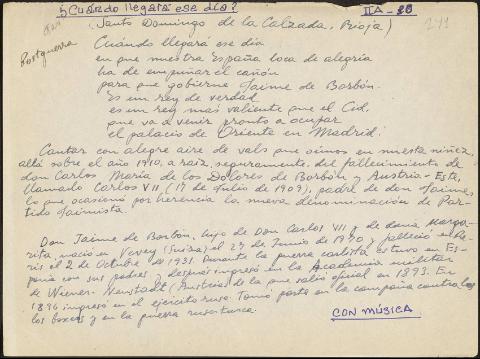 ¿Cuándo llegará ese día? IIA-26
(Santo Domingo de la Calzada, Rioja) 241
Postguerra
Cuándo llegará ese día
en que nuestra España loca de alegría
ha de empuñar el cañón
para que gobierne Jaime de Borbón.
Es un rey de verdad
es un rey más valiente que el Cid,
que va a venir pronto a ocupar
el palacio de Oriente en Madrid.
Cantar con alegre aire de vals que oimos en nuestra niñez,
allá sobre el año 1910, a raiz, seguramente, del fallecimiento de
don Carlos María de los Dolores de Borbón y Austria-Este,
llamado Carlos VII, (17 de Julio de 1909), padre de don Jaime,
lo que ocasionó por herencia la nueva denominación de Par-
tido Jaimista.
Don Jaime de Borbón, hijo de Don Carlos VII y de doña Marga-
rita, nació en Vevey (Suiza) el 27 de Junio de 1870 y falleció en Pa-
ris el 2 de Octubre de 1931. Durante la guerra carlista estuvo en Es-
paña con sus padres y después ingresó en la Academia militar
de Wiener-Neustadt (Austria) de la que salió oficial en 1893. En
1896 ingresó en el ejército ruso. Tomó parte en la campaña contra los
los boxers y en la guerra ruso-turca.
CON MÚSICA